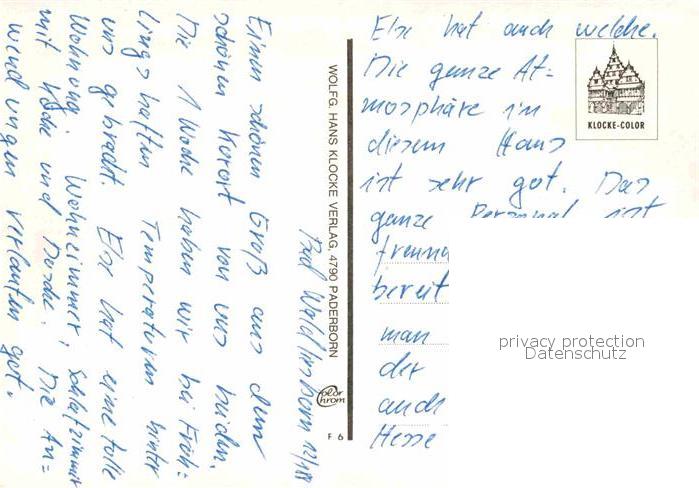 Bad Waldliesborn 12/1 88
Einen schönen Gruß aus dem
schönen Kurort von uns beiden.
Die 1 Woche haben wir bei Früh=
lingshaften Temperaturen hinter
uns gebracht. Else hat eine tolle
Wohnung. Wohnzimmer, Schlafzimmer
mit Küche und Dusche. Die An=
wendungen verlaufen gut.
WOLFG. HANS KLOCKE VERLAG, 4790 PADERBORN
Color
Chrom
F 6
Else hat auch welche.
Die ganze At=
mosphäre in
diesem Haus
ist sehr gut. Das
ganze Personal ist
freund
bereit
man
der
auch
Hesse
KLOCKE-COLOR
privacy protection
Datenschutz